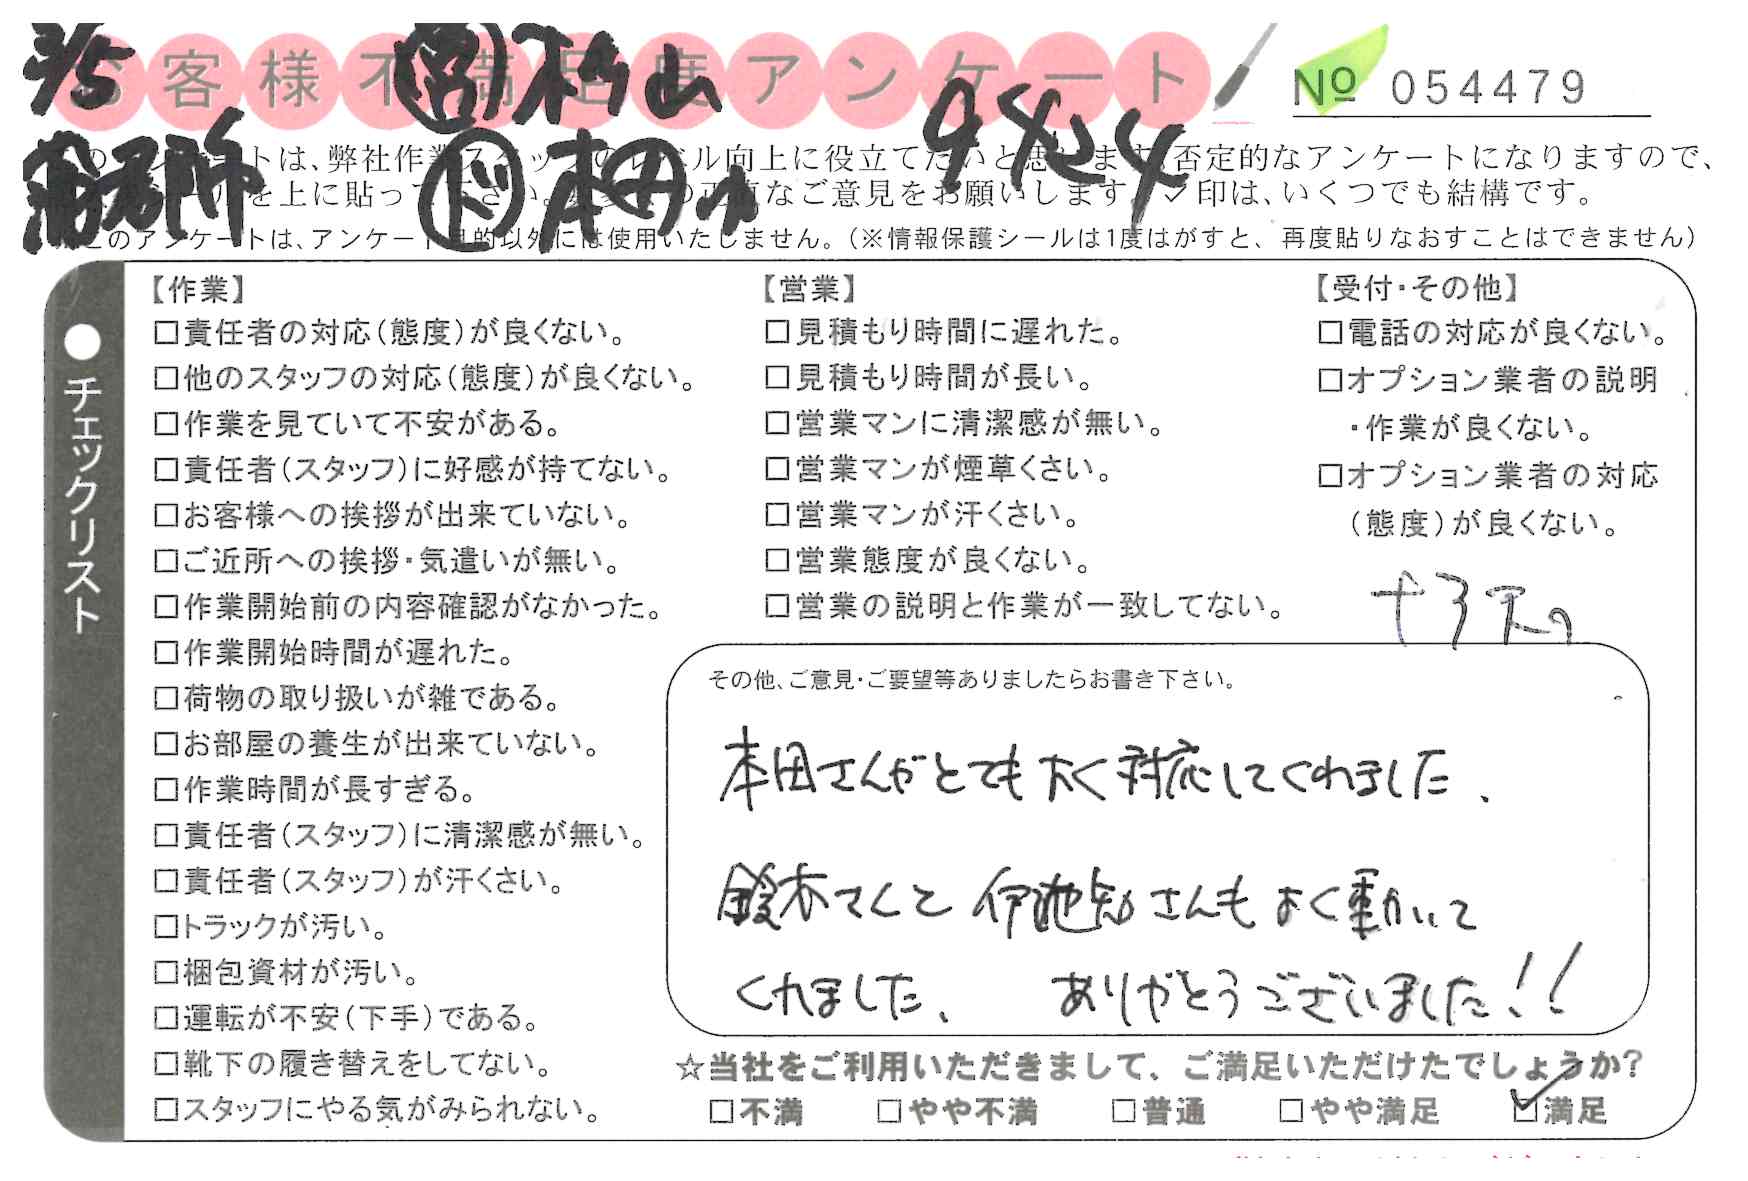 3/5
お客様不満足度アンケート
㊢杉山
9424
No 054479
このアンケートは、弊社作業スタッフのレベル向上に役立てたいと思います。否定的なアンケートになりますので、
を上に貼って下さい。お客様の正直なご意見をお願いします。✓印は、いくつでも結構です。
ド 本田
このアンケートは、アンケート目的以外には使用いたしません。（※情報保護シールは1度はがすと、再度貼りなおすことはできません）
●チェックリスト
【作業】
□責任者の対応（態度）が良くない。
□他のスタッフの対応（態度）が良くない。
□作業を見ていて不安がある。
□責任者（スタッフ）に好感が持てない。
□お客様への挨拶が出来ていない。
□ご近所への挨拶・気遣いが無い。
□作業開始前の内容確認がなかった。
□作業開始時間が遅れた。
□荷物の取り扱いが雑である。
□お部屋の養生が出来ていない。
□作業時間が長すぎる。
□責任者（スタッフ）に清潔感が無い。
□責任者（スタッフ）が汗くさい。
□トラックが汚い。
□梱包資材が汚い。
□運転が不安（下手）である。
□靴下の履き替えをしてない。
□スタッフにやる気がみられない。
【営業】
□見積もり時間に遅れた。
□見積もり時間が長い。
□営業マンに清潔感が無い。
□営業マンが煙草くさい。
□営業マンが汗くさい。
□営業態度が良くない。
□営業の説明と作業が一致してない。
【受付・その他】
□電話の対応が良くない。
□オプション業者の説明
・作業が良くない。
□オプション業者の対応
（態度）が良くない。
その他、ご意見・ご要望等ありましたらお書き下さい。
本田さんがとてもよく対応してくれました、
鈴木さんと伊池知さんもよく動いて
くれました、 ありがとうございました!!
☆当社をご利用いただきまして、ご満足いただけたでしょうか？
□不満 □やや不満 □普通 □やや満足 ☑満足